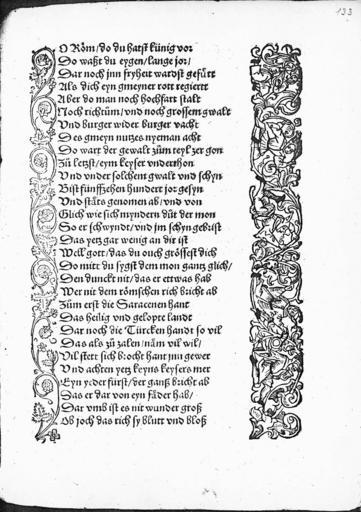 133
O Röm/do du hatst künig vor
Do waßt du eygen/lange jor/
Dar noch jnn fryheit wardst gefürt
Als dich eyn gmeyner rott regiert
Aber do man noch hochfart stalt
Noch richtům/vnd noch grossem gwalt
Vnd burger wider burger vacht
Des gmeyn nutzes nyeman acht
Do wart der gewalt zům teyl zer gon
Zů letzst/eym keyser vnderthon
Vnd vnder solchem gwalt vnd schyn
Bist fünffzehen hundert jor gesyn
Vnd stäts genomen ab/vnd von
Glich wie sich myndern důt der mon
So er schwyndt/vnd jm schyn gebrist
Das yetz gar wenig an dir ist
Well gott/das du ouch grössest dich
Do mitt du sygst dem mon gantz glich/
Den dunckt nit/das er ettwas hab
Wer nit dem römschen rich bricht ab
Zům erst die Saracenen hant
Das heilig vnd gelopte landt
Dar noch die Türcken handt so vil
Das als zů zalen/näm vil wil/
Vil stett sich brocht hant jnn gewer
Vnd achten yetz keyns keysers mer
Eyn yeder fürst/der ganß bricht ab
Das er dar von eyn fäder hab/
Dar vmb ist es nit wunder groß
Ob joch das rich sy blutt vnd bloß